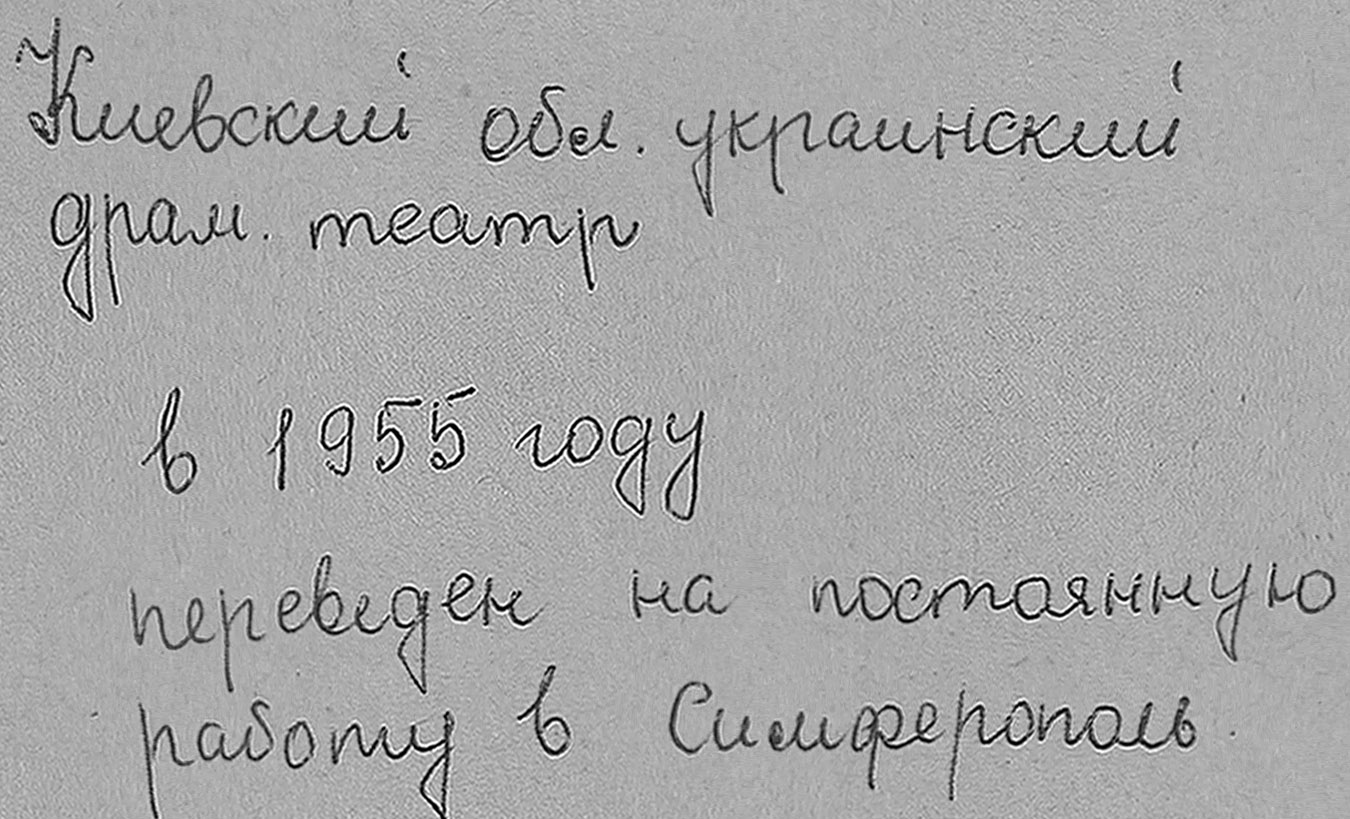 Киевский обл. украинский
драм. театр
в 1955 году
переведен на постоянную
работу в Симферополь.